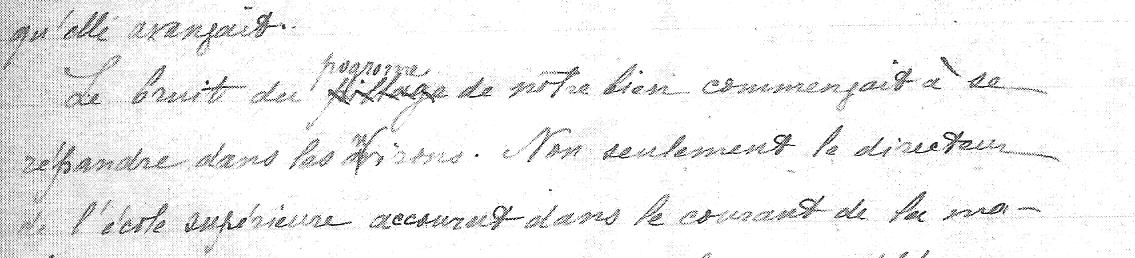 qu'elle avançait.
Le bruit du pogrome pillage de notre bien commençait à se
répandre dans les environs. Non seulement le directeur
de l'école supérieure accourut dans le courant de la ma-